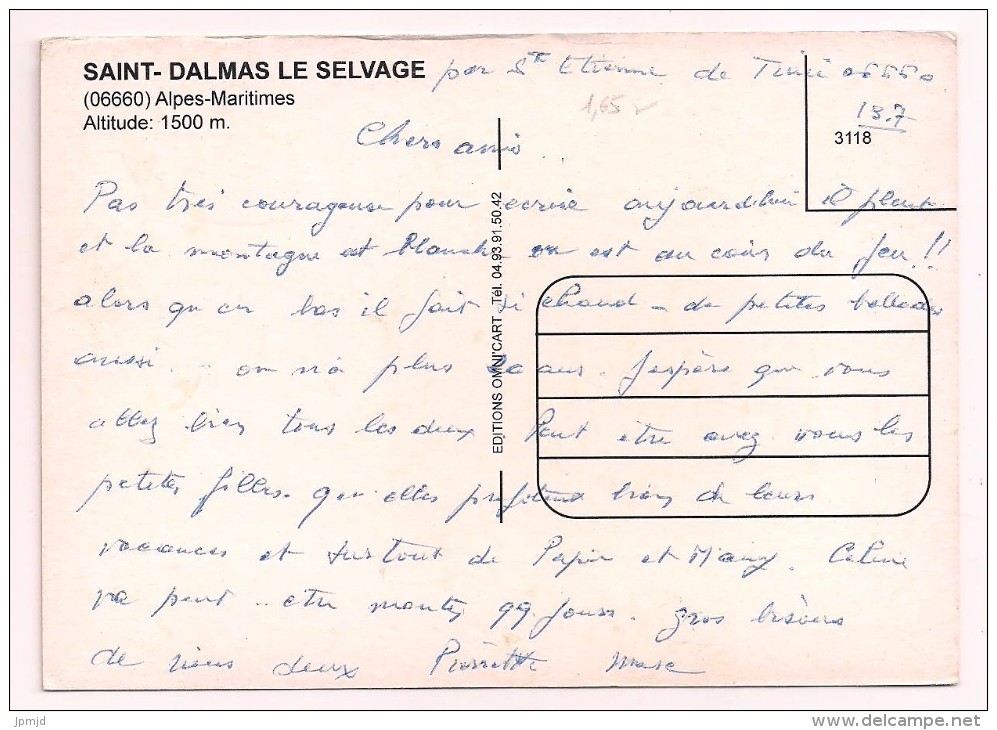 SAINT- DALMAS LE SELVAGE par St Etienne de Tinée 06660
(06660) Alpes-Maritimes
Altitude: 1500 m.
1,65
13.7
3118
Chers amis
Pas très courageuse pour écrire aujourd'hui il pleut
et la montagne est blanche on est au coin du feu !!
alors qu'en bas il fait si chaud - de petites ballades
aussi .. on n'a plus 20 ans. J'espère que vous
allez bien tous les deux Peut être avez vous les
petites filles. qu'elles profitent bien de leurs
vacances et surtout de Papi et Mamy. Celine
va peut .. etre monter qq. jours. gros bisous
de nous deux Pierrette Marc
EDITIONS OMNI'CART Tél. 04.93.91.50.42
jpmjd
www.delcampe.net